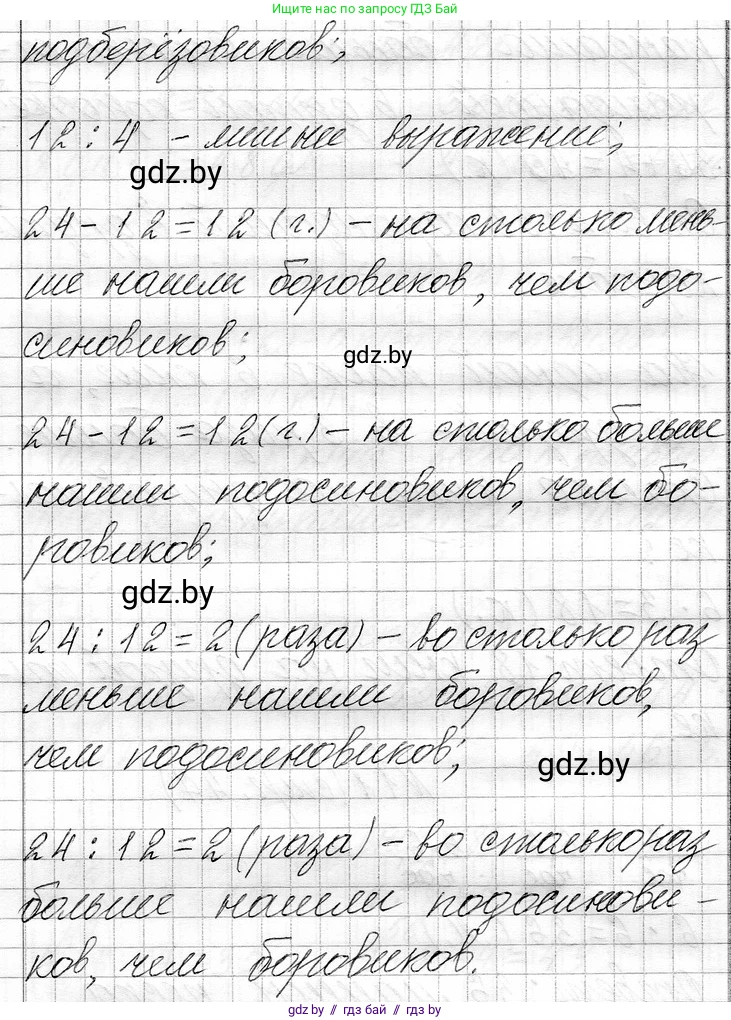 Ищите нас по запросу ГДЗ Бай
подберёзовиков;
12 : 4 - лишнее выражение;
gdz.by
24 - 12 = 12 (г.) - на столько мень-
ше нашли боровиков, чем подо-
синовиков;
gdz.by
24 - 12 = 12 (г.) - на столько больше
нашли подосиновиков, чем бо-
ровиков;
gdz.by
24 : 12 = 2 (раза) - во столько раз
меньше нашли боровиков,
чем подосиновиков;
gdz.by
24 : 12 = 2 (раза) - во столько раз
больше нашли подосинови-
ков, чем боровиков.
gdz.by // гдз бай // gdz.by